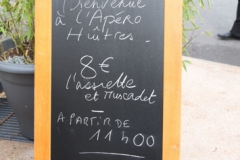 Bienvenue
à l'Apéro
Huîtres.
8€
l'assiette
et Muscadet
A PARTIR DE
11h00